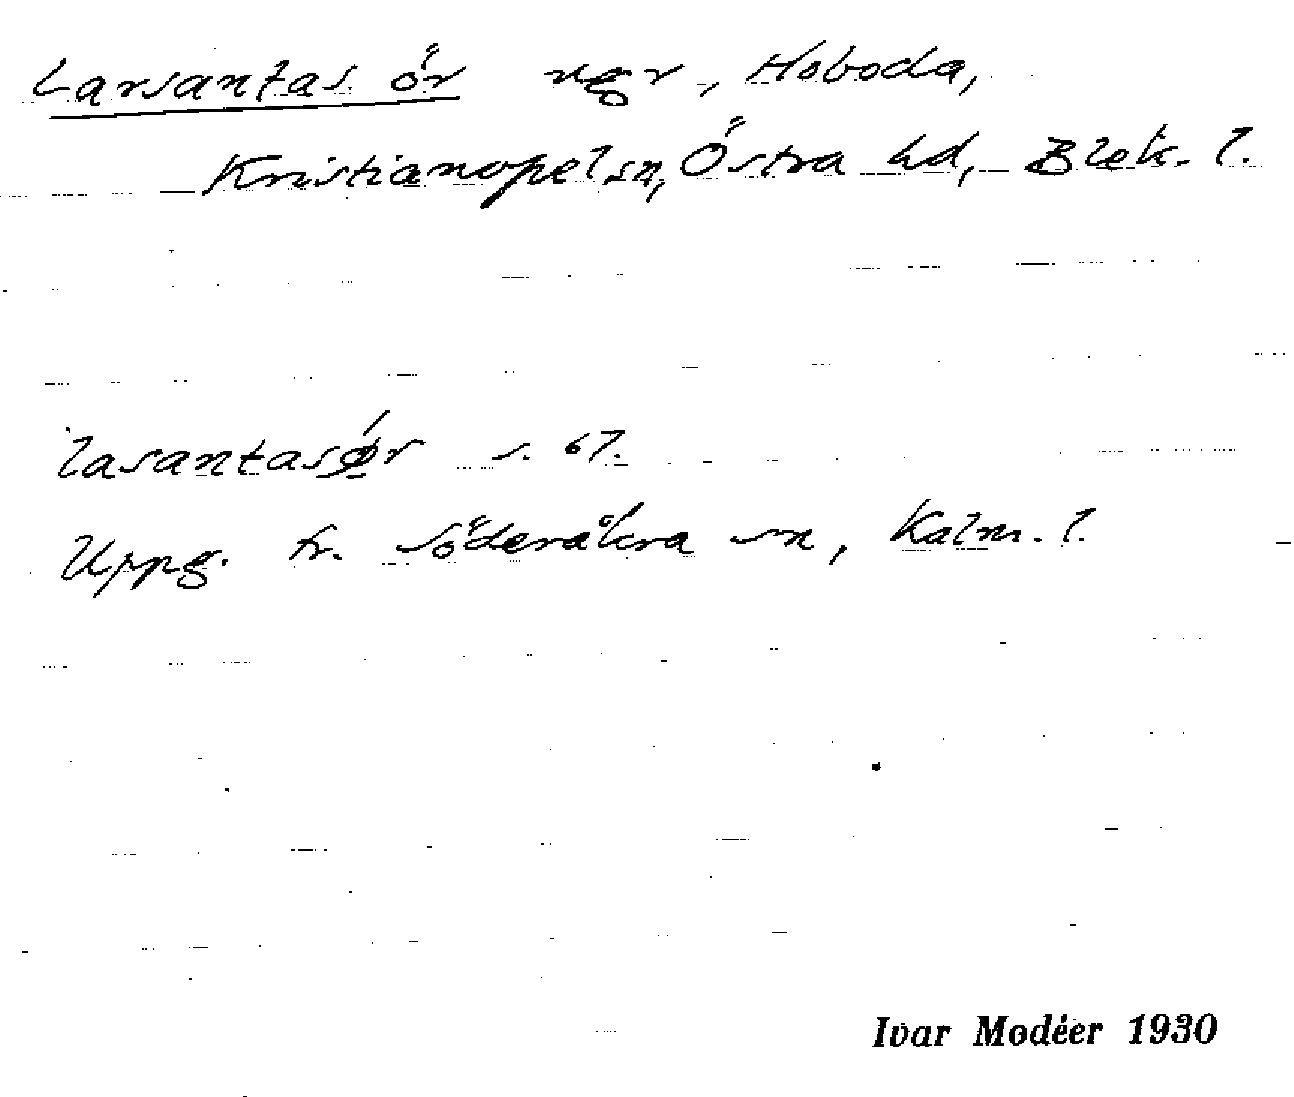 Larsantas ör ngr, Hoboda,
Kristianopel sn, Östra hd, Blek. l.
lasantasǿr s. 67.
Uppg. fr. Söderåkra sn, Kalm. l.
Ivar Modéer 1930